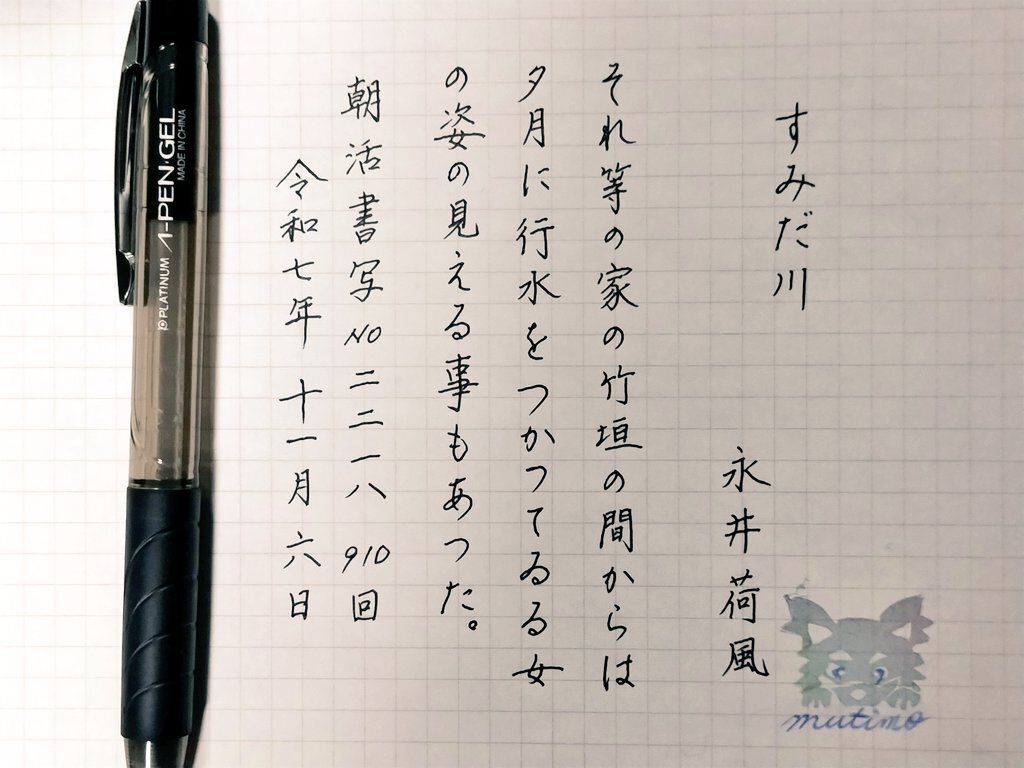 すみだ川
永井荷風
それ等の家の竹垣の間からは
夕月に行水をつかつてゐる女
の姿の見える事もあつた。
朝活書写NO二二一八 910回
令和七年 十一月六日
PLATINUM A-PEN・GEL
MADE IN CHINA
mutimo